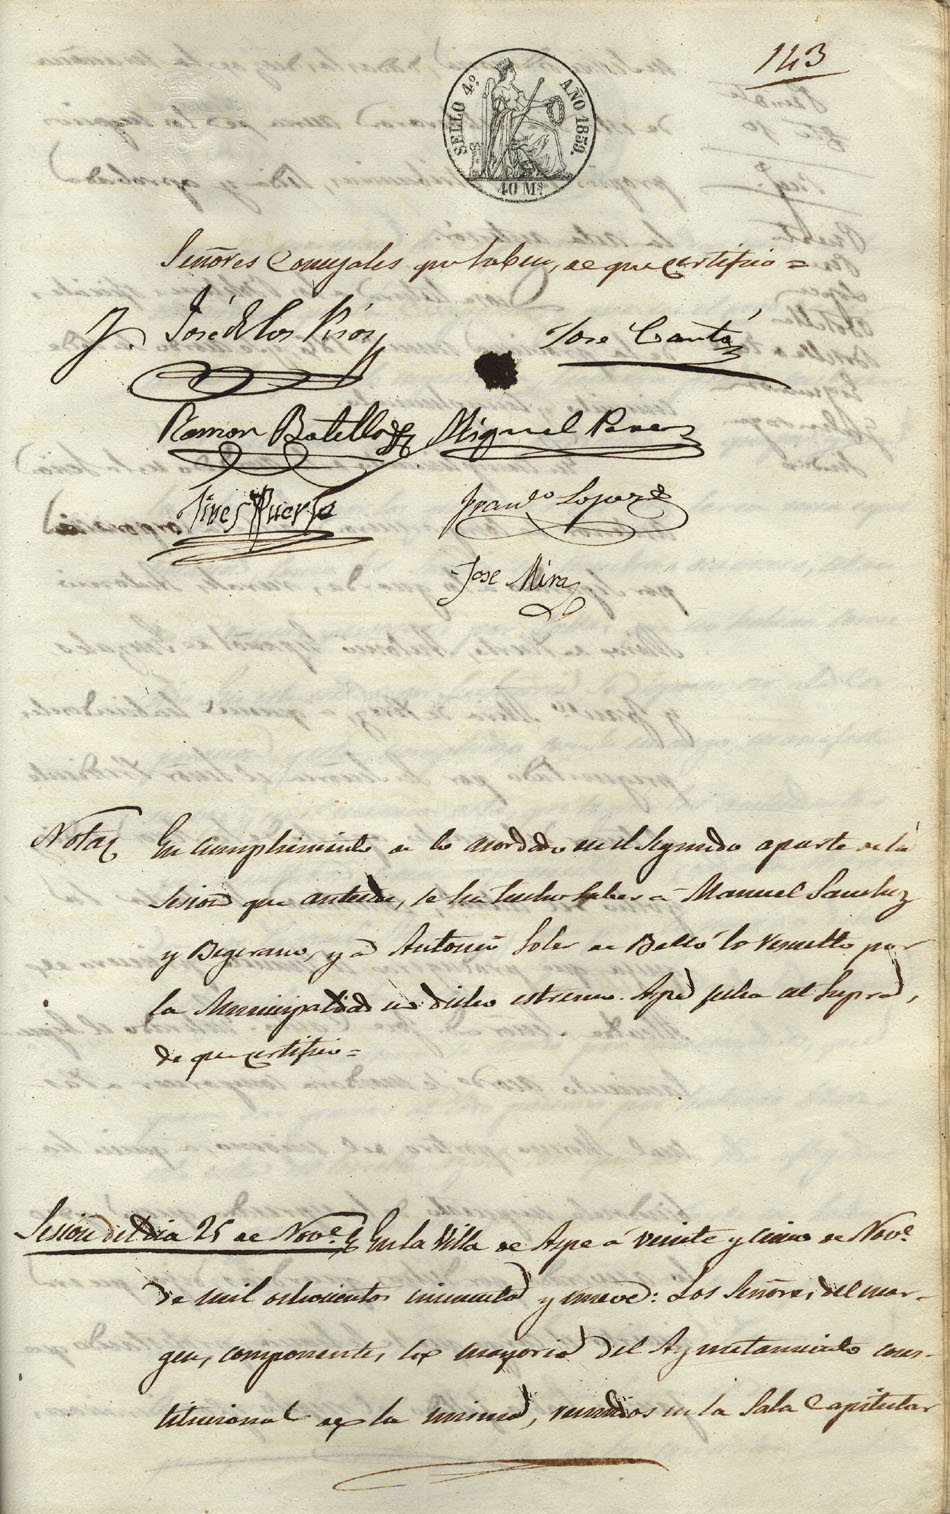 143
SELLO 4º AÑO 1859.
40 Mˢ
Señores Concejales que saben, de que certifico =
José de los Rios
José Cantó
Ramon Botella Miguel Perez
Gines Puerto
Franco Lopez
Jose Mira
Nota En cumplimiento de lo acordado en el segundo aparte de la
sesion que antecede, se ha hecho saber a Manuel Sanchez
y Bejerano, y a Antonio Soler de Belló lo resuelto por
la Municipalidad en dicho estremo. Aspe fecha ut supra,
de que certifico =
Sesion del dia 25 de Nove. En la Villa de Aspe á veinte y cinco de Nove.
de mil ochocientos cincuenta y nueve: Los Señores del mar-
gen, componentes la mayoria del Ayuntamiento cons-
titucional de la misma, reunidos en la Sala Capitular